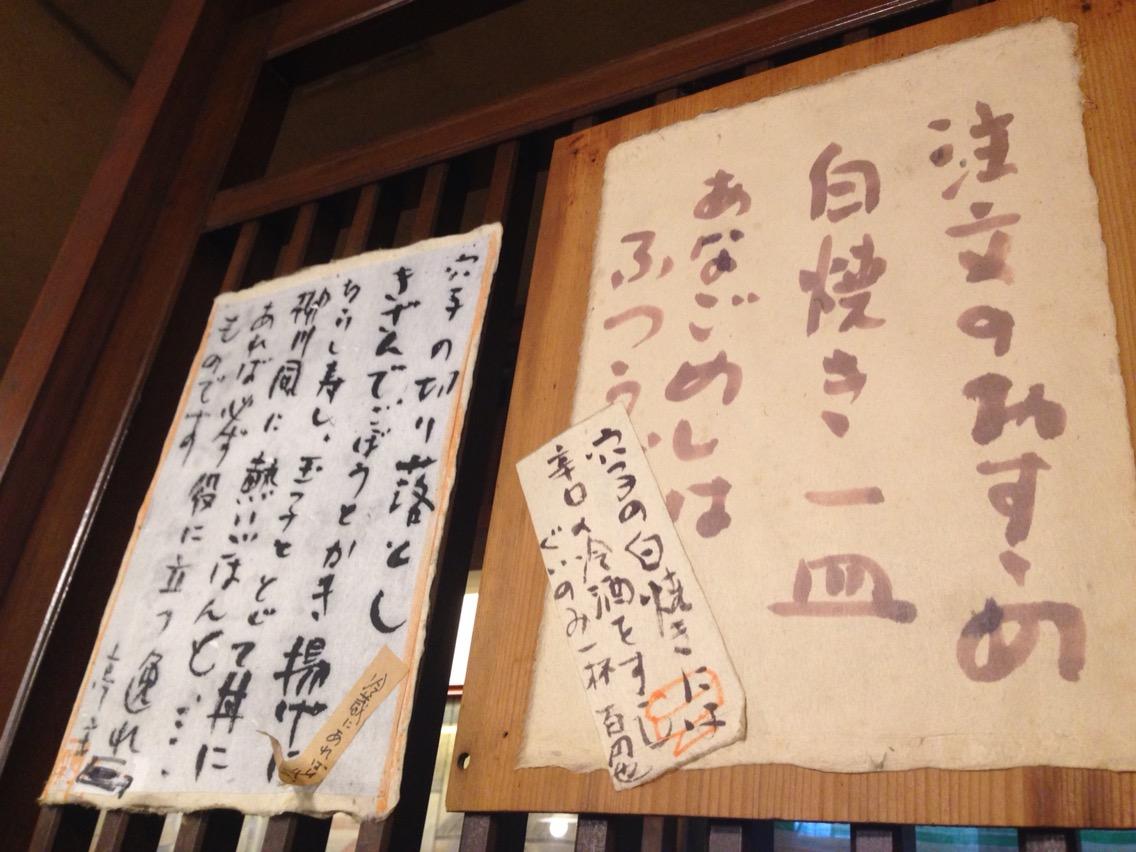 注文のおすすめ
白焼き一皿
あなごめしは
ふつう
穴子の白焼きには
辛口の冷酒をすこし
ぐいのみ一杯 百円也
穴子の切り落とし
きざんでごぼうとかき揚げに
ちらし寿し、玉子ととじて丼に
柳川風に熱いほんと…
あれば必ず役に立つ優れ
ものです
冷蔵にあれば